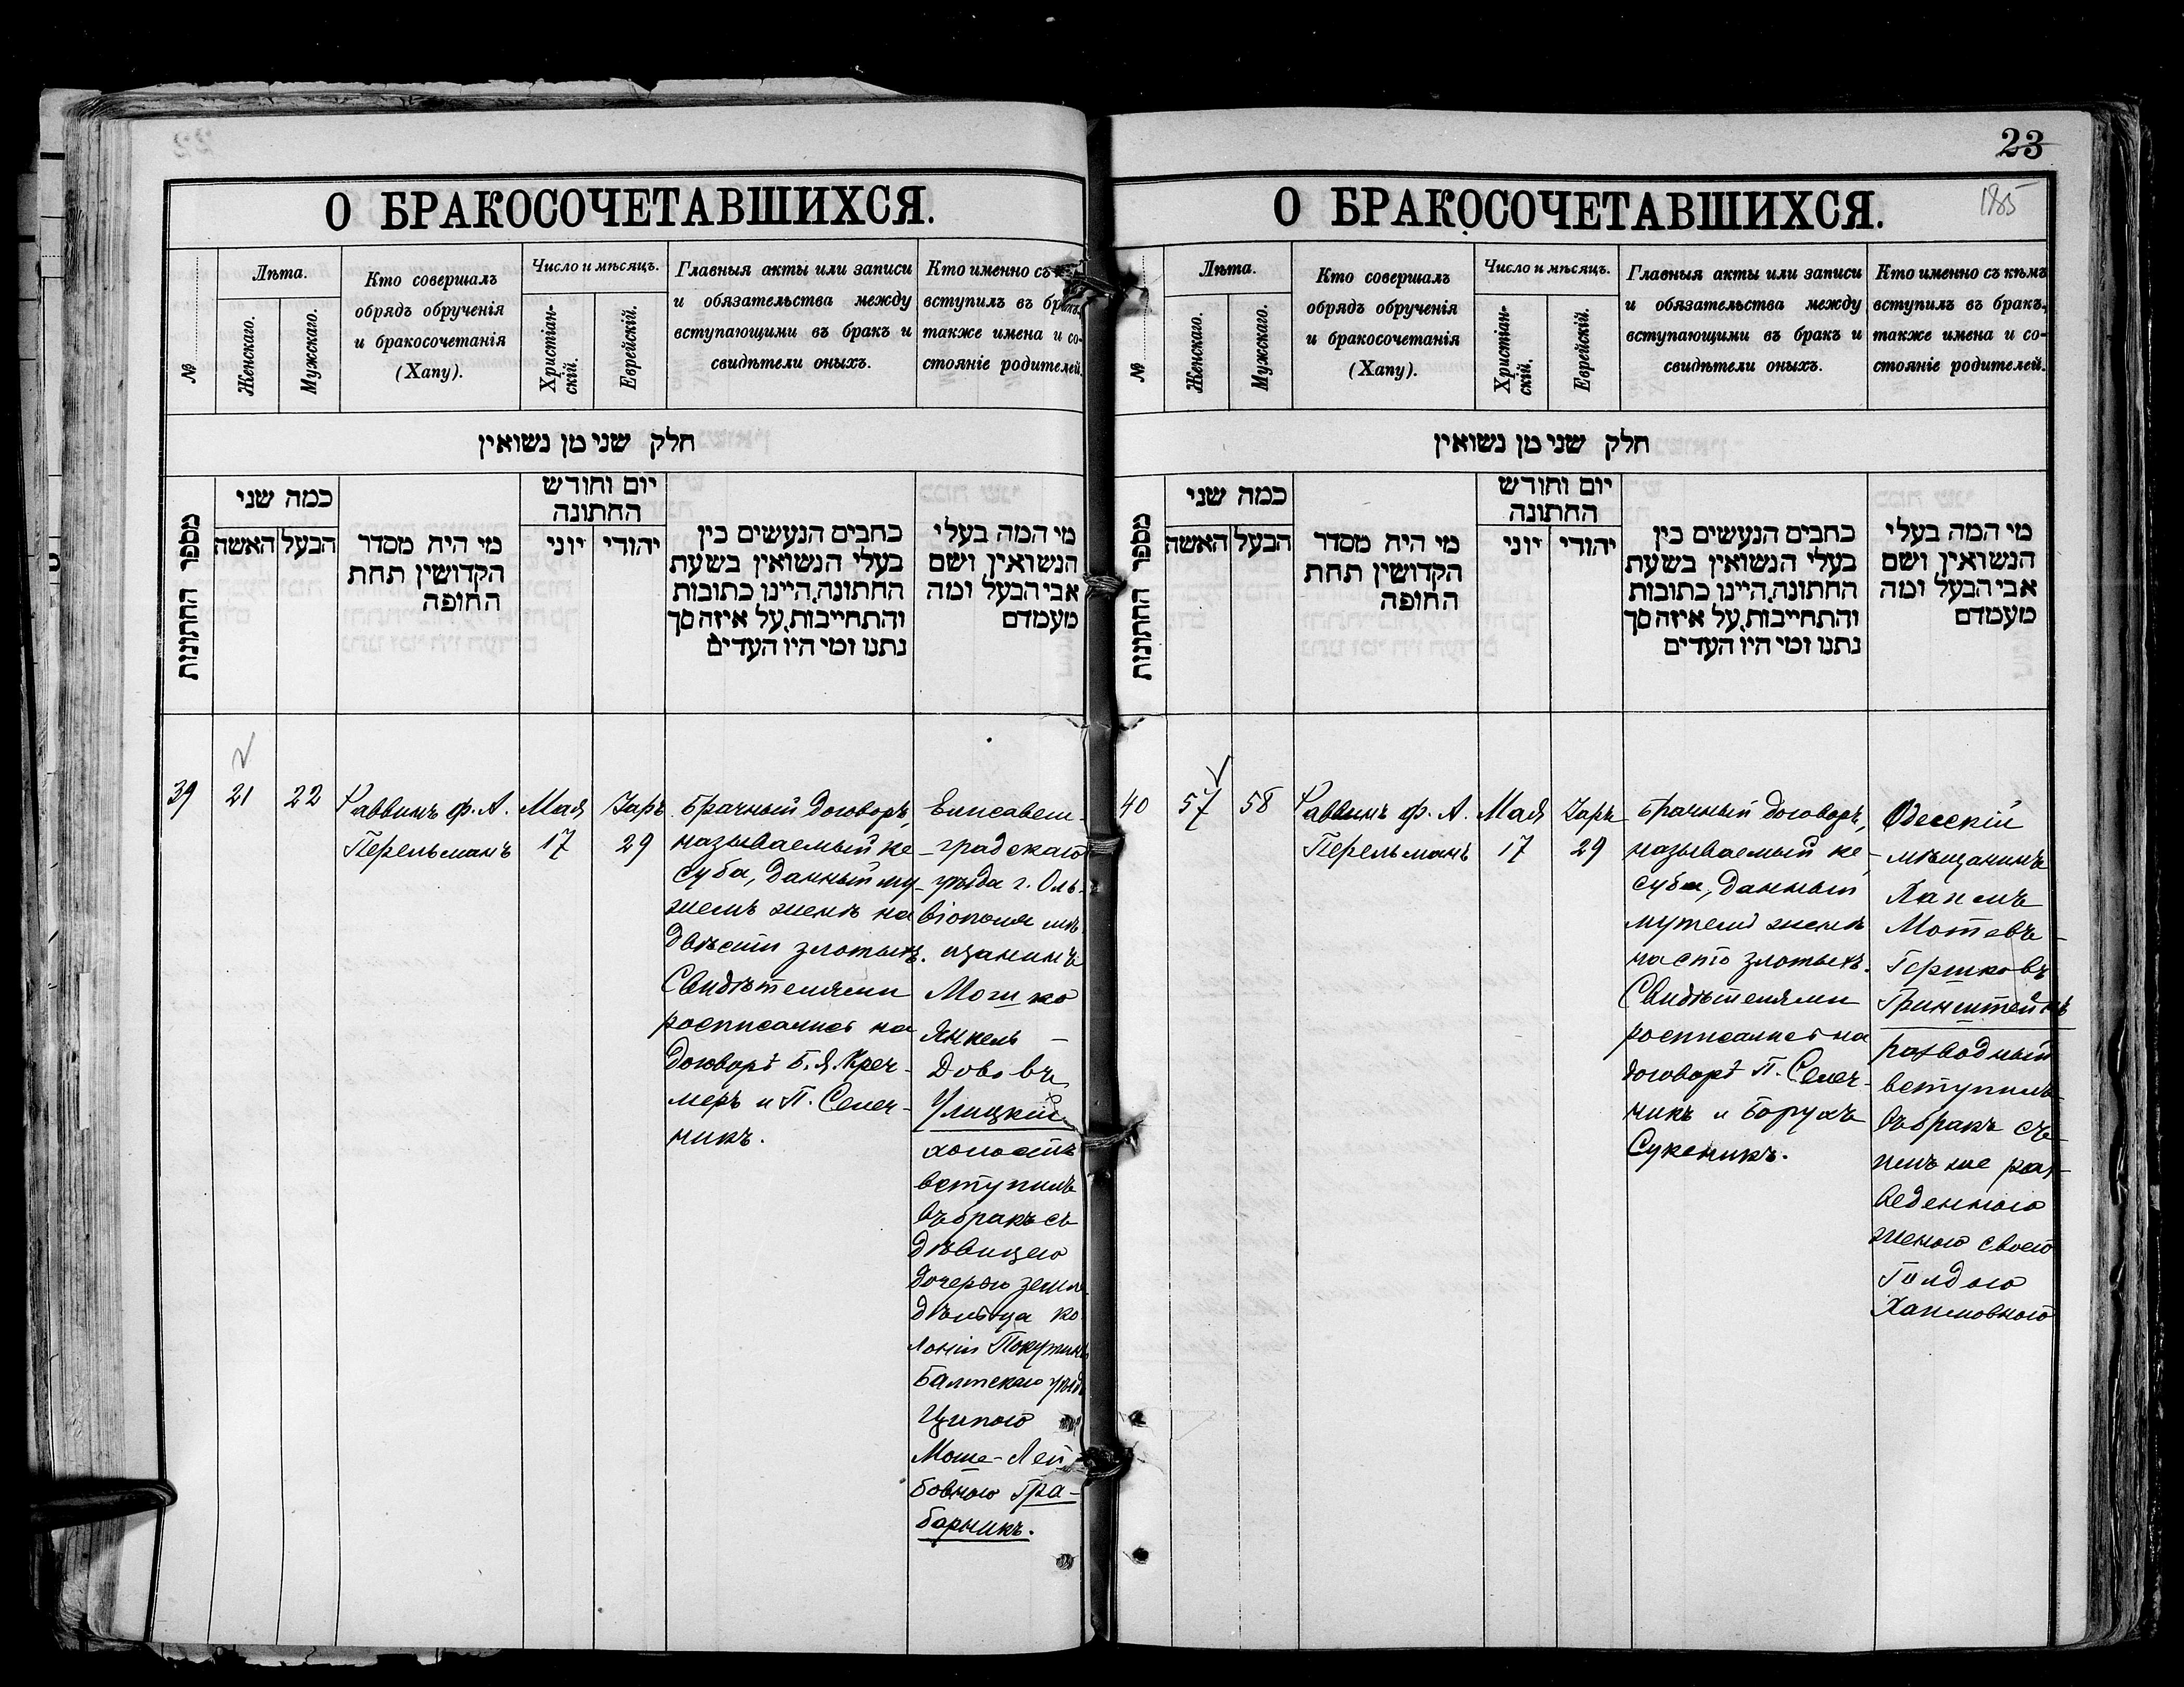 О БРАКОСОЧЕТАВШИХСЯ.
№
Лѣта.
Женскаго.
Мужскаго.
Кто совершалъ
обрядъ обрученія
и бракосочетанія
(Хапу).
Число и мѣсяцъ.
Христіан-
скій.
Еврейскій.
Главныя акты или записи
и обязательства между
вступающими въ бракъ и
свидѣтели оныхъ.
Кто именно съ
вступилъ въ бракъ,
также имена и со-
стояніе родителей.
חלק שני מן נשואין
מספר החתונות
כמה שני
האשה
הבעל
מי היה מסדר
הקדושין תחת
החופה
יום וחודש
החתונה
יוני
יהודי
כתבים הנעשים בין
בעלי הנשואין בשעת
החתונה, היינו כתובות
והתחייבות, על איזה סך
נתנו ומי היו העדים
מי המה בעלי
הנשואין ושם
אבי הבעל ומה
מעמדם
39
21
22
Раввинъ ф. А.
Перельманъ
Мая
17
Іаръ
29
Брачный договоръ,
называемый ке-
суба, данный му-
жемъ женѣ на
двѣсти злотыхъ.
Свидѣтелями
росписались на
договорѣ Б. Я. Креч-
меръ и П. Селеч-
никъ.
Елисавет-
градскаго
уѣзда г. Оль-
віополя мѣ-
щанинъ
Мошко
Янкель
Дововъ
Улицкій
холостъ
вступилъ
въ бракъ съ
дѣвицею
дочерью земле
дѣльца ко-
лоніи Покутина
Балтскаго уѣзда
Ципою
Моше-Лей
бовною Гра-
барникъ.
23
185
О БРАКОСОЧЕТАВШИХСЯ.
№
Лѣта.
Женскаго.
Мужскаго.
Кто совершалъ
обрядъ обрученія
и бракосочетанія
(Хапу).
Число и мѣсяцъ.
Христіан-
скій.
Еврейскій.
Главныя акты или записи
и обязательства между
вступающими въ бракъ и
свидѣтели оныхъ.
Кто именно съ кѣмъ
вступилъ въ бракъ,
также имена и со-
стояніе родителей.
חלק שני מן נשואין
מספר החתונות
כמה שני
האשה
הבעל
מי היה מסדר
הקדושין תחת
החופה
יום וחודש
החתונה
יוני
יהודי
כתבים הנעשים בין
בעלי הנשואין בשעת
החתונה, היינו כתובות
והתחייבות, על איזה סך
נתנו ומי היו העדים
מי המה בעלי
הנשואין ושם
אבי הבעל ומה
מעמדם
40
57
58
Раввинъ ф. А.
Перельманъ
Мая
17
Іаръ
29
Брачный договоръ,
называемый ке-
суба, данный
мужемъ женѣ
на сто злотыхъ.
Свидѣтелями
росписались на
договорѣ П. Селеч-
никъ и Борухъ
Сукеникъ.
Одесскій
мѣщанинъ
Хаимъ
Мотевъ-
Гершковъ
Гринштейнъ
разводный
вступилъ
въ бракъ съ
раз-
веденною
женою своею
Голдою
Хаимовною